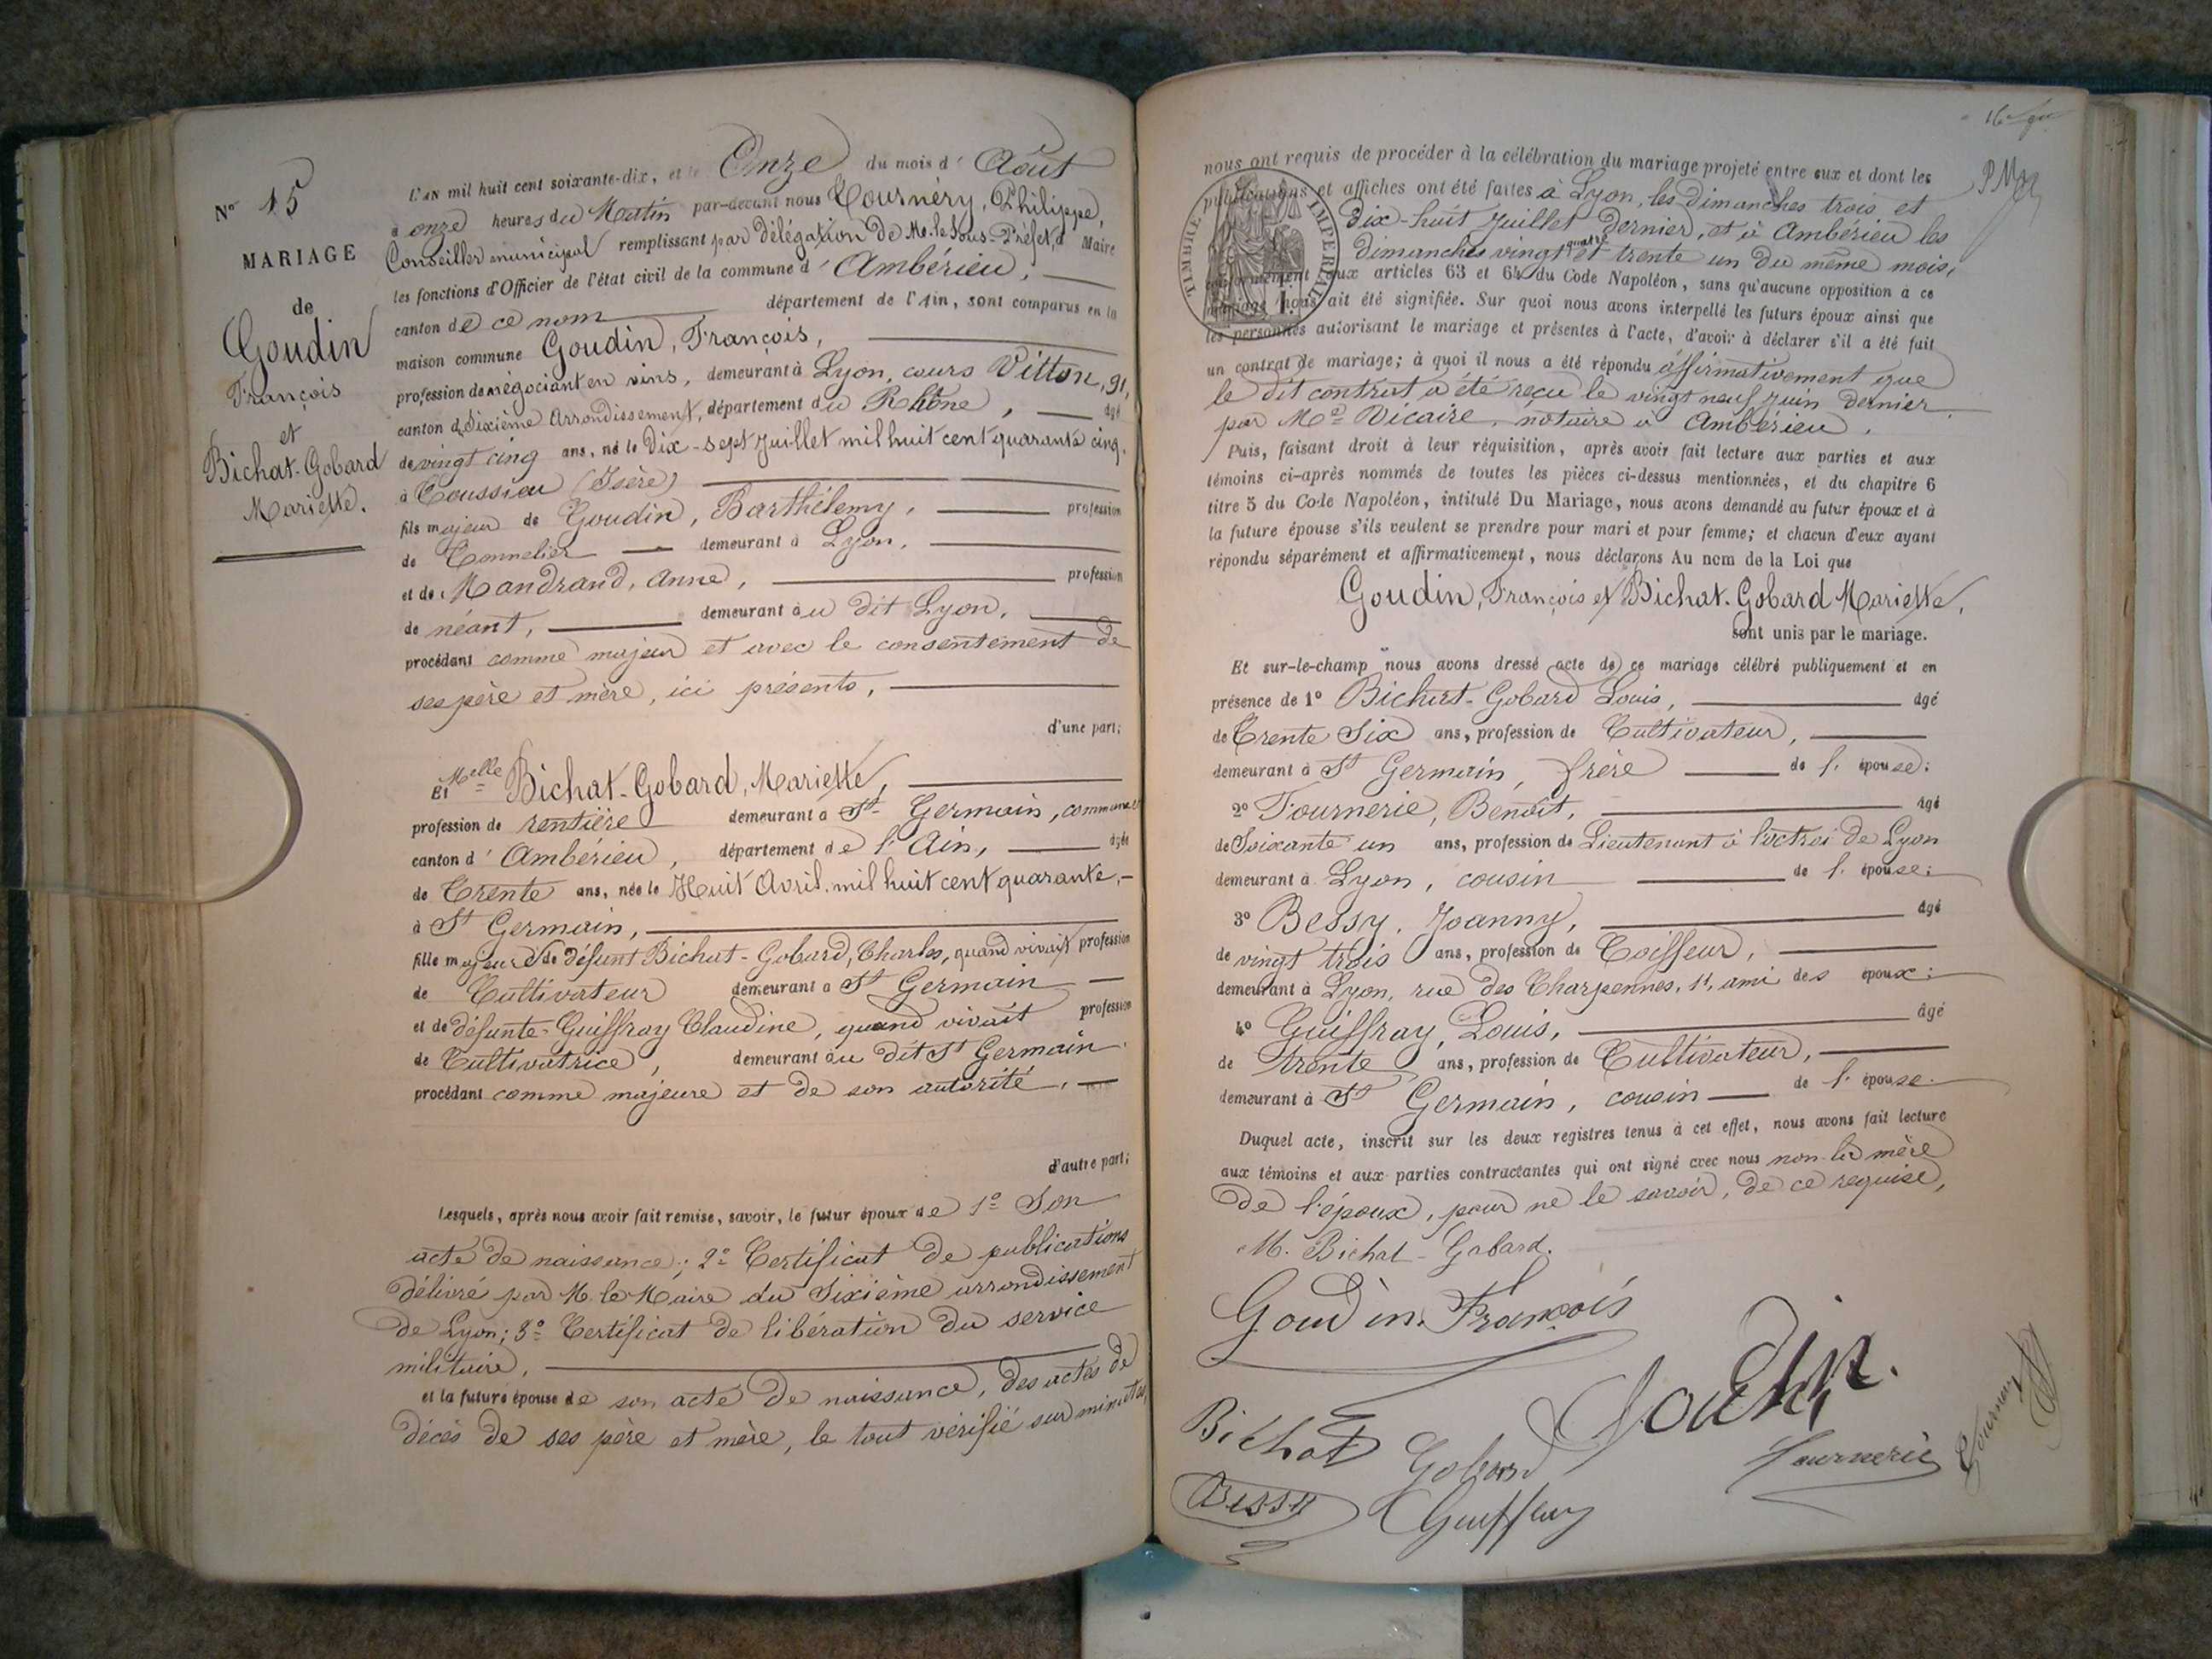 N° 15
MARIAGE
de
Goudin
François
et
Bichat-Gobard
Mariette.
L'AN mil huit cent soixante-dix, et le Onze du mois d'Août
à onze heures du Matin par-devant nous Tournéry, Philippe,
Conseiller municipal remplissant par délégation de Mr. le Sous-Préfet, Maire
les fonctions d'Officier de l'état civil de la commune d'Ambérieu,
canton de ce nom département de l'Ain, sont comparus en la
maison commune Goudin, François,
profession de négociant en vins, demeurant à Lyon, cours Vitton, 91,
canton d Sixième Arrondissement, département du Rhône, âgé
de vingt cinq ans, né le Dix-sept Juillet mil huit cent quarante cinq.
à Toussieu (Isère)
fils majeur de Goudin, Barthélemy, profession
de Tonnelier demeurant à Lyon,
et de Mandrand, Anne, profession
de néant, demeurant au dit Lyon,
procédant comme majeur et avec le consentement de
ses père et mère, ici présents,
d'une part;
Et Melle Bichat-Gobard, Mariette,
profession de rentière demeurant à St Germain, commune et
canton d'Ambérieu, département de l'Ain, âgée
de Trente ans, née le Huit Avril mil huit cent quarante,
à St Germain,
fille majeure de défunt Bichat-Gobard, Charles, quand vivait profession
de Cultivateur demeurant à St Germain
et de défunte Guiffray Claudine, quand vivait profession
de Cultivatrice, demeurant au dit St Germain.
procédant comme majeure et de son autorité,
d'autre part;
Lesquels, après nous avoir fait remise, savoir, le futur époux de 1° Son
acte de naissance; 2° Certificat de publications
délivré par M. le Maire du Sixième arrondissement
de Lyon; 3° Certificat de libération du service
militaire,
et la future épouse de son acte de naissance, des actes de
décès de ses père et mère, le tout vérifié sur minutes,
nous ont requis de procéder à la célébration du mariage projeté entre eux et dont les
publications et affiches ont été faites à Lyon, les dimanches trois et
dix-huit Juillet dernier, et à Ambérieu les
dimanches vingt quatre et trente un du même mois,
TIMBRE IMPERIAL
conformément aux articles 63 et 64 du Code Napoléon, sans qu'aucune opposition à ce
mariage nous ait été signifiée. Sur quoi nous avons interpellé les futurs époux ainsi que
les personnes autorisant le mariage et présentes à l'acte, d'avoir à déclarer s'il a été fait
un contrat de mariage; à quoi il nous a été répondu affirmativement que
le dit contrat a été reçu le vingt neuf Juin dernier
par Me Dicaire, notaire à Ambérieu.
Puis, faisant droit à leur réquisition, après avoir fait lecture aux parties et aux
témoins ci-après nommés de toutes les pièces ci-dessus mentionnées, et du chapitre 6
titre 5 du Code Napoléon, intitulé Du Mariage, nous avons demandé au futur époux et à
la future épouse s'ils veulent se prendre pour mari et pour femme; et chacun d'eux ayant
répondu séparément et affirmativement, nous déclarons Au nom de la Loi que
Goudin, François et Bichat-Gobard Mariette,
sont unis par le mariage.
Et sur-le-champ nous avons dressé acte de ce mariage célébré publiquement et en
présence de 1° Bichat-Gobard Louis, âgé
de Trente Six ans, profession de Cultivateur,
demeurant à St Germain, frère de l'épouse;
2° Tournerie, Benoît, âgé
de Soixante un ans, profession de Lieutenant à l'octroi de Lyon
demeurant à Lyon, cousin de l'épouse;
3° Bessy, Joanny, âgé
de vingt trois ans, profession de Coiffeur,
demeurant à Lyon, rue des Charpennes, 11, ami des époux;
4° Guiffray, Louis, âgé
de trente ans, profession de Cultivateur,
demeurant à St Germain, cousin de l'épouse.
Duquel acte, inscrit sur les deux registres tenus à cet effet, nous avons fait lecture
aux témoins et aux parties contractantes qui ont signé avec nous non la mère
de l'époux, pour ne le savoir, de ce requise,
M. Bichat-Gobard.
Goudin François
Goudin.
Bichat Gobard
Tournerie
Tournery
Bessy
Guiffray